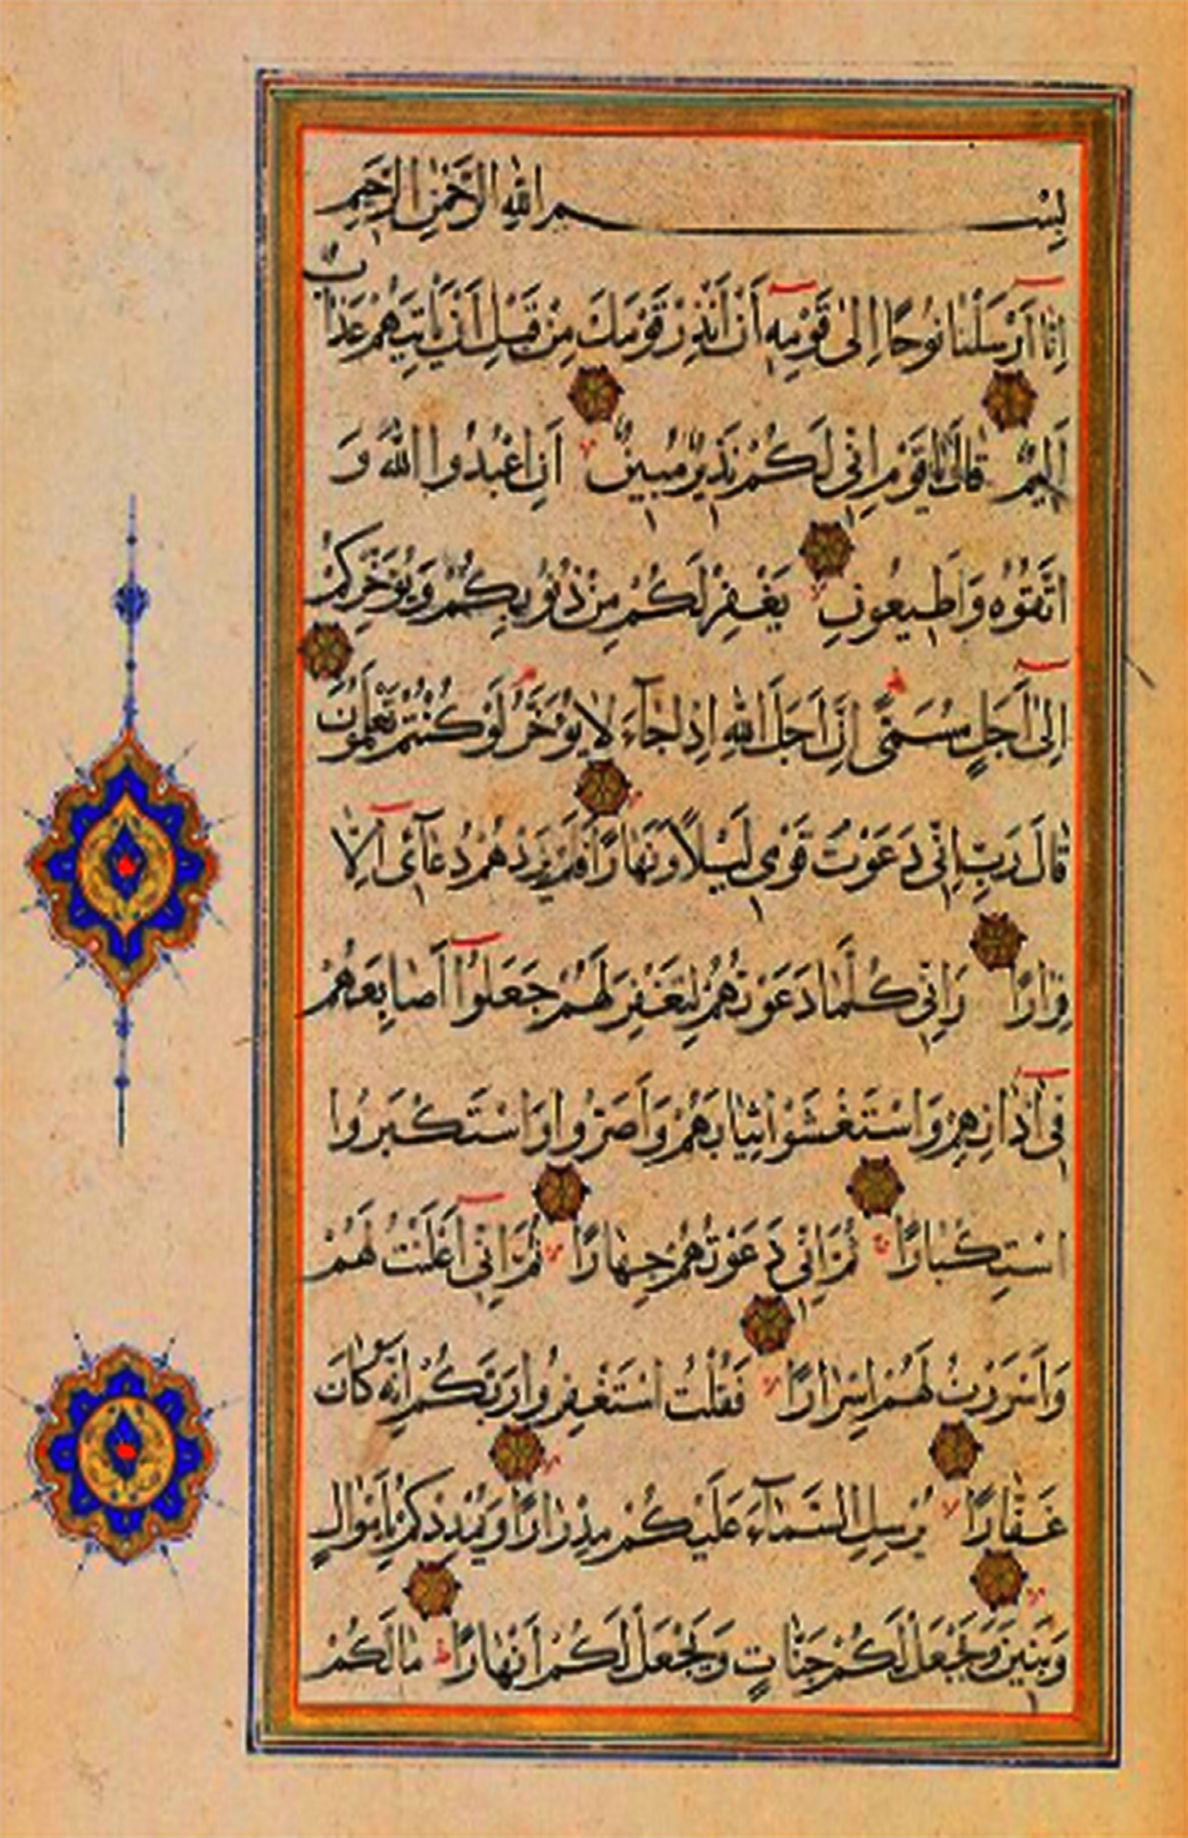 بِسْمِ اللهِ الرَّحْمٰنِ الرَّحِيمِ
اِنَّا اَرْسَلْنَا نُوحًا اِلٰى قَوْمِهِ اَنْ اَنْذِرْ قَوْمَكَ مِنْ قَبْلِ اَنْ يَاْتِيَهُمْ عَذَابٌ
اَلِيمٌ قَالَ يَا قَوْمِ اِنِّى لَكُمْ نَذِيرٌ مُبِينٌ اَنِ اعْبُدُوا اللهَ وَ
اتَّقُوهُ وَاَطِيعُونِ يَغْفِرْ لَكُمْ مِنْ ذُنُوبِكُمْ وَيُؤَخِّرْكُمْ
اِلٰى اَجَلٍ مُسَمًّى اِنَّ اَجَلَ اللهِ اِذَا جَآءَ لَا يُؤَخَّرُ لَوْ كُنْتُمْ تَعْلَمُونَ
قَالَ رَبِّ اِنِّى دَعَوْتُ قَوْمِى لَيْلًا وَنَهَارًا فَلَمْ يَزِدْهُمْ دُعَآئِى اِلَّا
فِرَارًا وَاِنِّى كُلَّمَا دَعَوْتُهُمْ لِتَغْفِرَ لَهُمْ جَعَلُوا اَصَابِعَهُمْ
فِى اٰذَانِهِمْ وَاسْتَغْشَوْا ثِيَابَهُمْ وَاَصَرُّوا وَاسْتَكْبَرُوا
اسْتِكْبَارًا ثُمَّ اِنِّى دَعَوْتُهُمْ جِهَارًا ثُمَّ اِنِّى اَعْلَنْتُ لَهُمْ
وَاَسْرَرْتُ لَهُمْ اِسْرَارًا فَقُلْتُ اسْتَغْفِرُوا رَبَّكُمْ اِنَّهُ كَانَ
غَفَّارًا يُرْسِلِ السَّمَآءَ عَلَيْكُمْ مِدْرَارًا وَيُمْدِدْكُمْ بِاَمْوَالٍ
وَبَنِينَ وَيَجْعَلْ لَكُمْ جَنَّاتٍ وَيَجْعَلْ لَكُمْ اَنْهَارًا مَا لَكُمْ